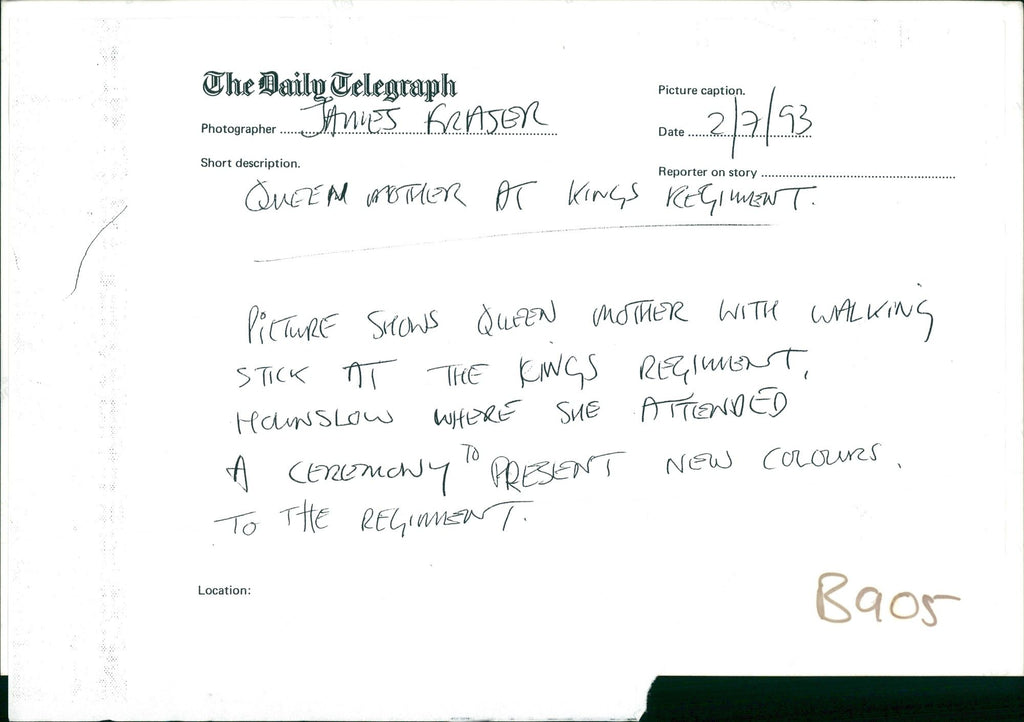 The Daily Telegraph
Picture caption.
Photographer JAMES FRASER
Date 2/7/93
Short description.
Reporter on story
QUEEN MOTHER AT KINGS REGIMENT.
PICTURE SHOWS QUEEN MOTHER WITH WALKING
STICK AT THE KINGS REGIMENT,
HOUNSLOW WHERE SHE ATTENDED
A CEREMONY TO PRESENT NEW COLOURS.
TO THE REGIMENT.
Location:
B905